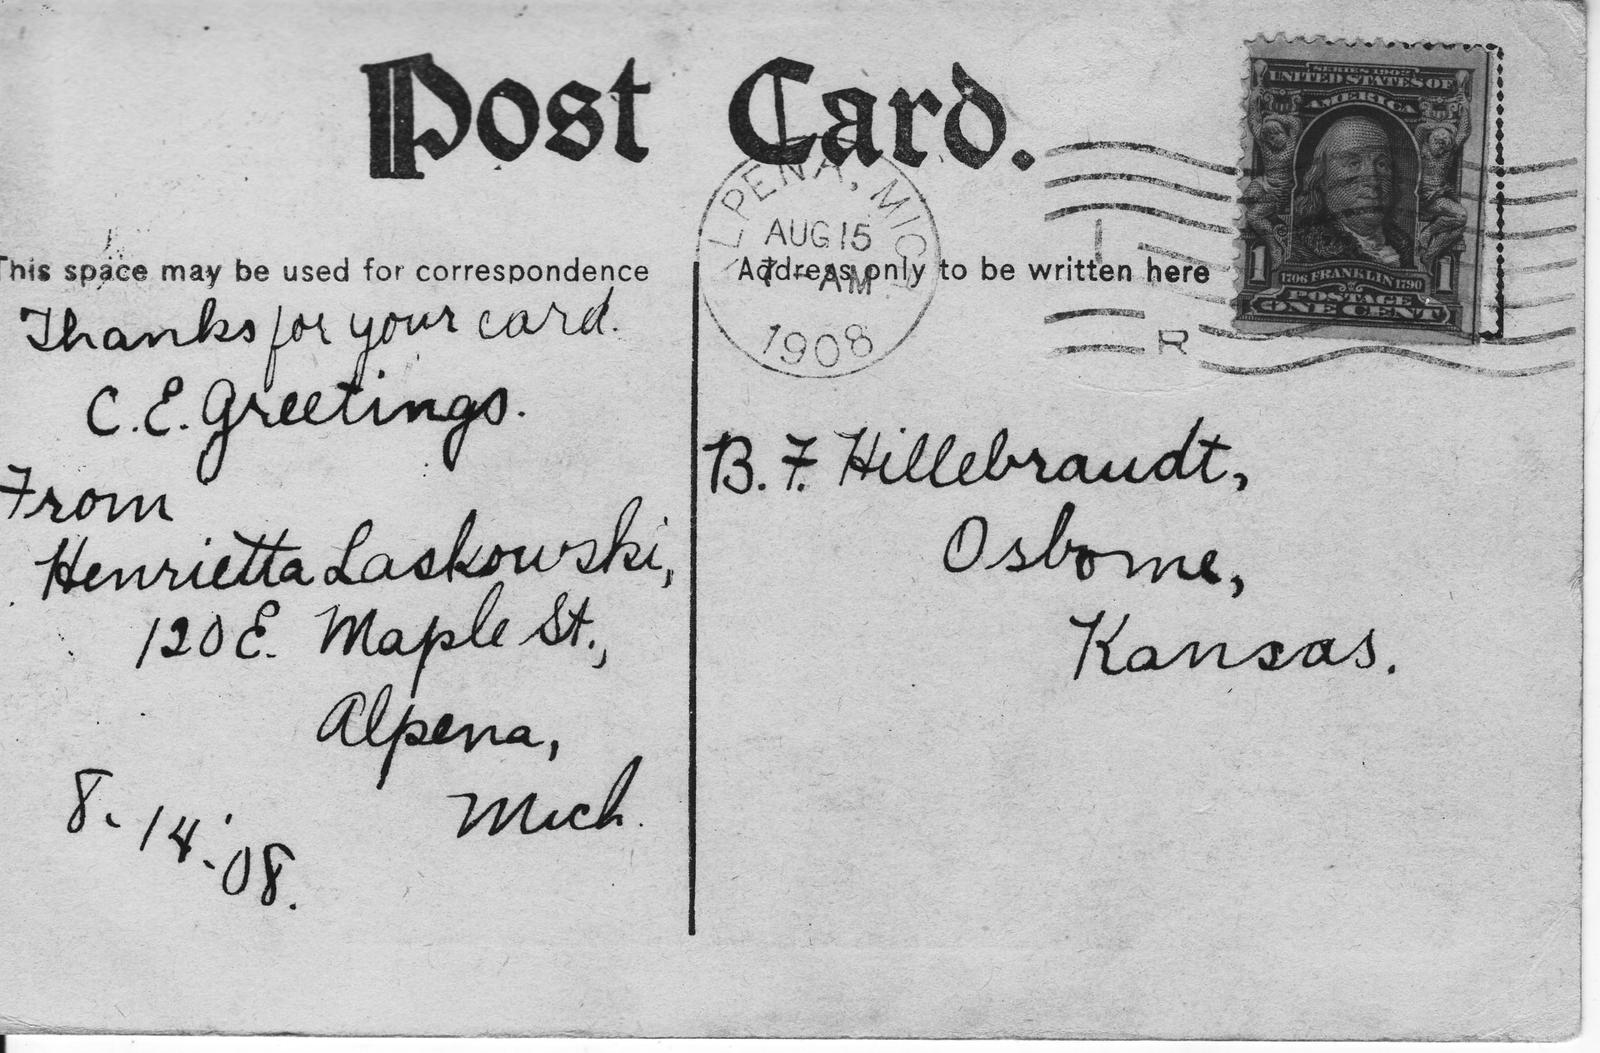 Post Card.
SERIES 1902
UNITED STATES OF
AMERICA
1 1706 FRANKLIN 1790 1
POSTAGE
ONE CENT
ALPENA, MICH
AUG 15
AM
1908
R
This space may be used for correspondence
Address only to be written here
Thanks for your card.
C. E. Greetings.
From
Henrietta Laskowski,
120 E. Maple St.,
Alpena,
Mich.
8. 14. '08.
B. F. Hillebraudt,
Osborne,
Kansas.